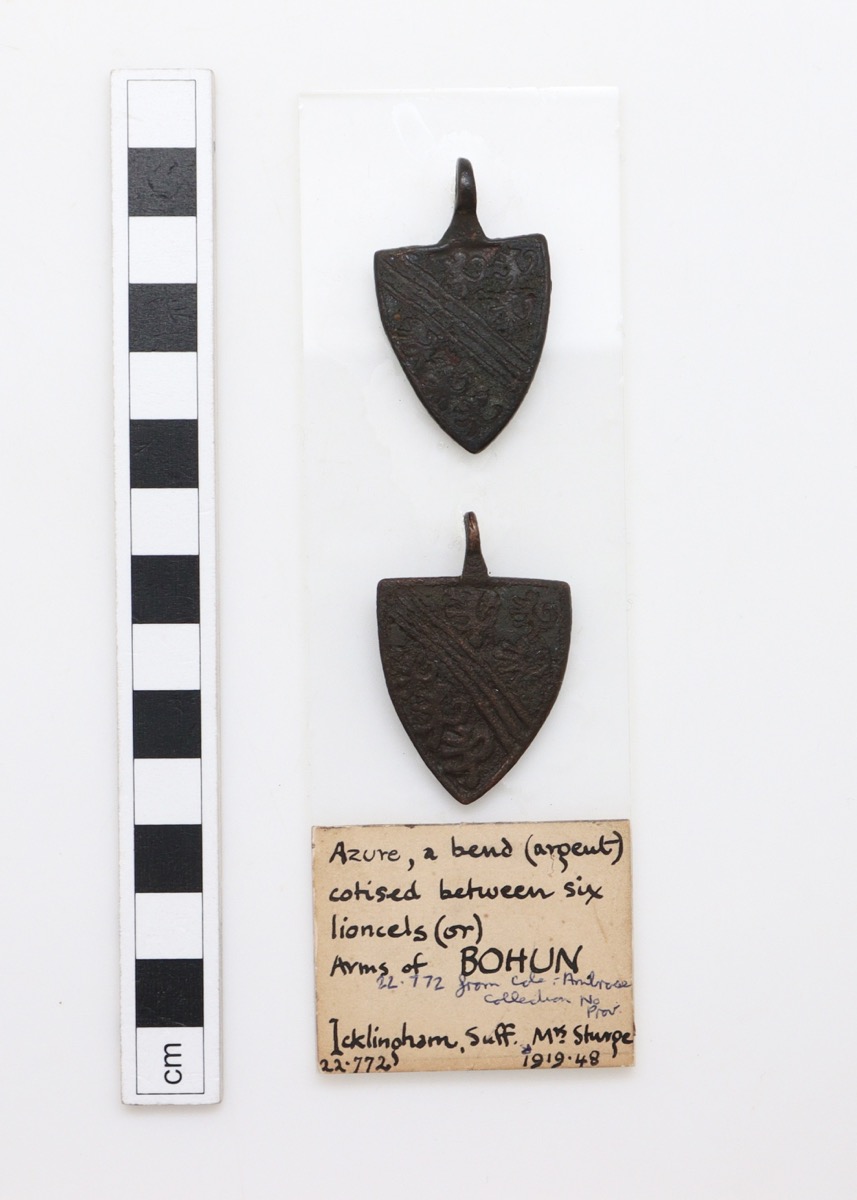 cm
Azure, a bend (argent)
cotised between six
lioncels (or)
Arms of BOHUN
22.772 from Cole-Ambrose
Collection No
Prov.
Icklingham, Suff. Mrs. Sturge
22.772 1919.48